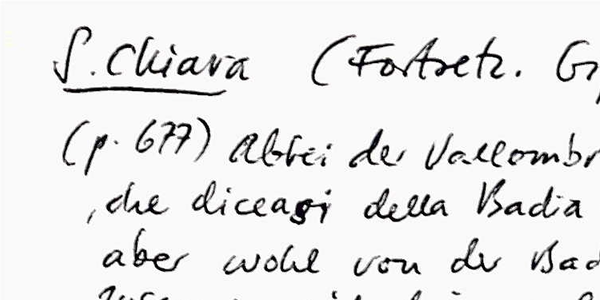 S. Chiara (Fortsetz. G
(p. 677) Abtei der Vallombr
, che diceasi della Badia
aber wohl von der Bad